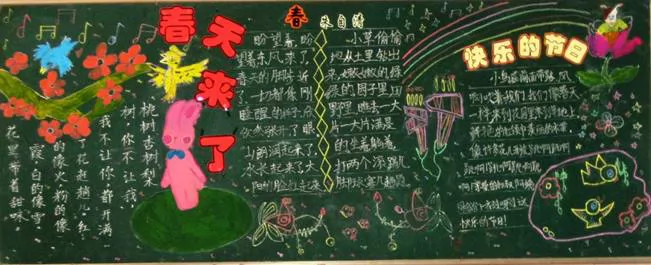 春天来了
桃树杏树梨
树,你不让我,
我不让你,都开满
了花赶趟儿。红
的像火,粉的像
霞,白的像雪。
花里带着甜味
春 朱自清
盼望着,盼
着东风来了,
春天的脚步近
了,一切都像刚
睡醒的样子,欣
欣然张开了眼
山朗润起来了,
水长起来了太
阳的脸红起来
小草偷偷
地从土里钻出
来,嫩嫩的,绿
绿的园子里田
野里瞧去一大
片一大片满是
的坐着躺着,
打两个滚,踢几
脚球,赛几趟跑
快乐的节日
小鸟在前面带路,风
儿吹着我们,我们像春天
一样来到花园里来到草地上
鲜艳的红领巾美丽的衣裳
像许多花儿开放
跳啊跳啊
快乐的节日!